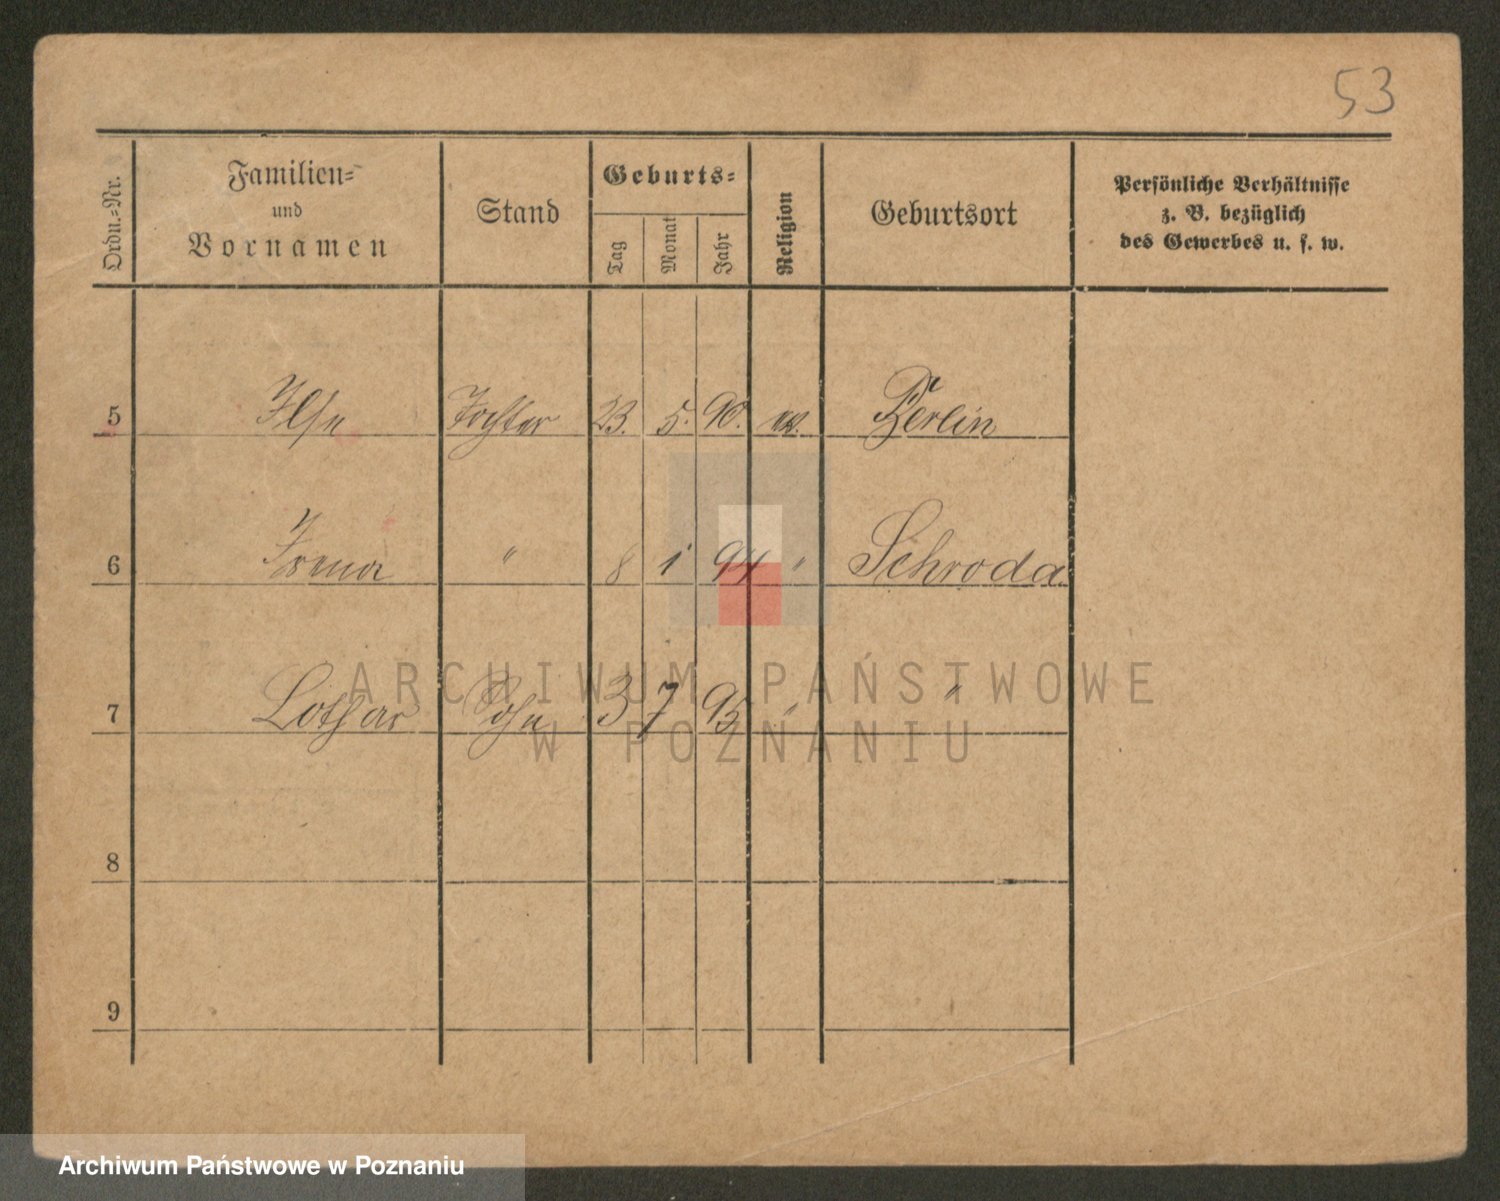 53
Ordn.-Nr.
Familien-
und
Vornamen
Stand
Geburts-
Tag
Monat
Jahr
Religion
Geburtsort
Persönliche Verhältnisse
z. B. bezüglich
des Gewerbes u. s. w.
5 Ilse Tochter 23. 5. 90. ev. Berlin
6 Irena " 8 1 94 " Schroda
7 Lothar Sohn 3 7 95 " "
8
9
ARCHIWUM PAŃSTWOWE
W POZNANIU
Archiwum Państwowe w Poznaniu